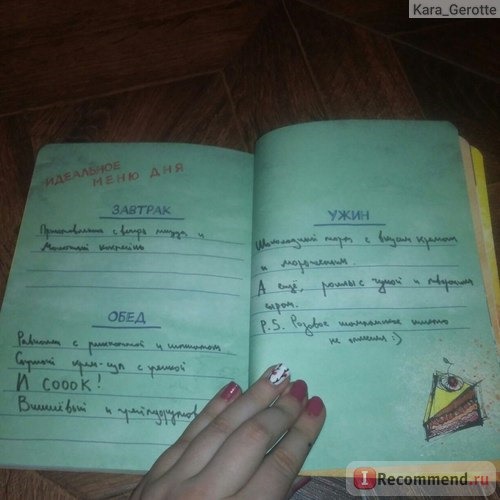 Kara_Gerotte
ИДЕАЛЬНОЕ
МЕНЮ ДНЯ
ЗАВТРАК
Приготовленная с вечера пицца и
Молочный коктейль
ОБЕД
Равиоли с рикоттой и шпинатом
Сырный крем-суп с гренкой
И СОООК!
Вишнёвый и грейпфрутовый
УЖИН
Шоколадный торт с вкусным кремом
и мороженым.
А ещё, роллы с чукой и творожным
сыром.
P.S. Розовое шампанское никто
не отменял :)
IRecommend.ru